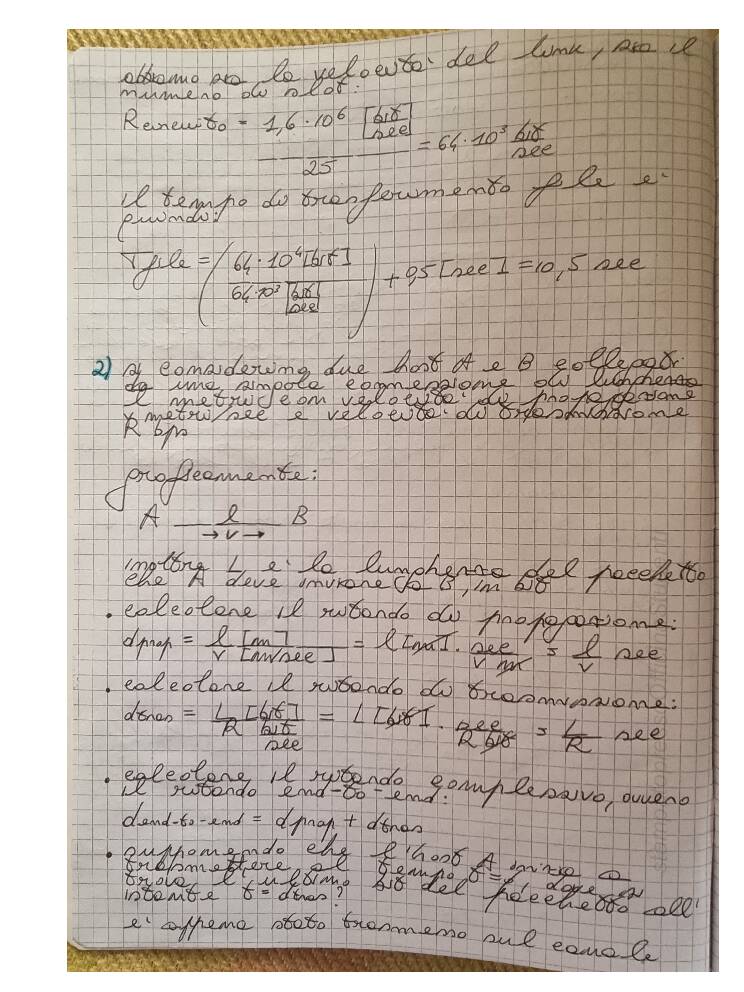 abbiamo sia la velocità del link, sia il
numero di slot:
Rcircuito = 1,6·10⁶ [bit/sec] / 25 = 64·10³ bit/sec
il tempo di trasferimento file è
quindi:
Tfile = (64·10⁴ [bit] / 64·10³ [bit/sec]) + 0,5 [sec] = 10,5 sec
2) si considerino due host A e B collegati
da una singola connessione di lunghezza
l metri, con velocità di propagazione
v metri/sec e velocità di trasmissione
R bps
graficamente:
A l B
→ v →
inoltre L è la lunghezza del pacchetto
che A deve inviare a B, in bit
• calcolare il ritardo di propagazione:
dprop = l [m] / v [m/sec] = l [m] · sec / v m = l/v sec
• calcolare il ritardo di trasmissione:
dtras = L [bit] / R bit/sec = L [bit] · sec / R bit = L/R sec
• calcolare il ritardo complessivo, ovvero
il ritardo end-to-end:
dend-to-end = dprop + dtras
• supponendo che l'host A inizia a
trasmettere al tempo t= dove si
trova l'ultimo bit del pacchetto all'
istante t = dtras?
è appena stato trasmesso sul canale